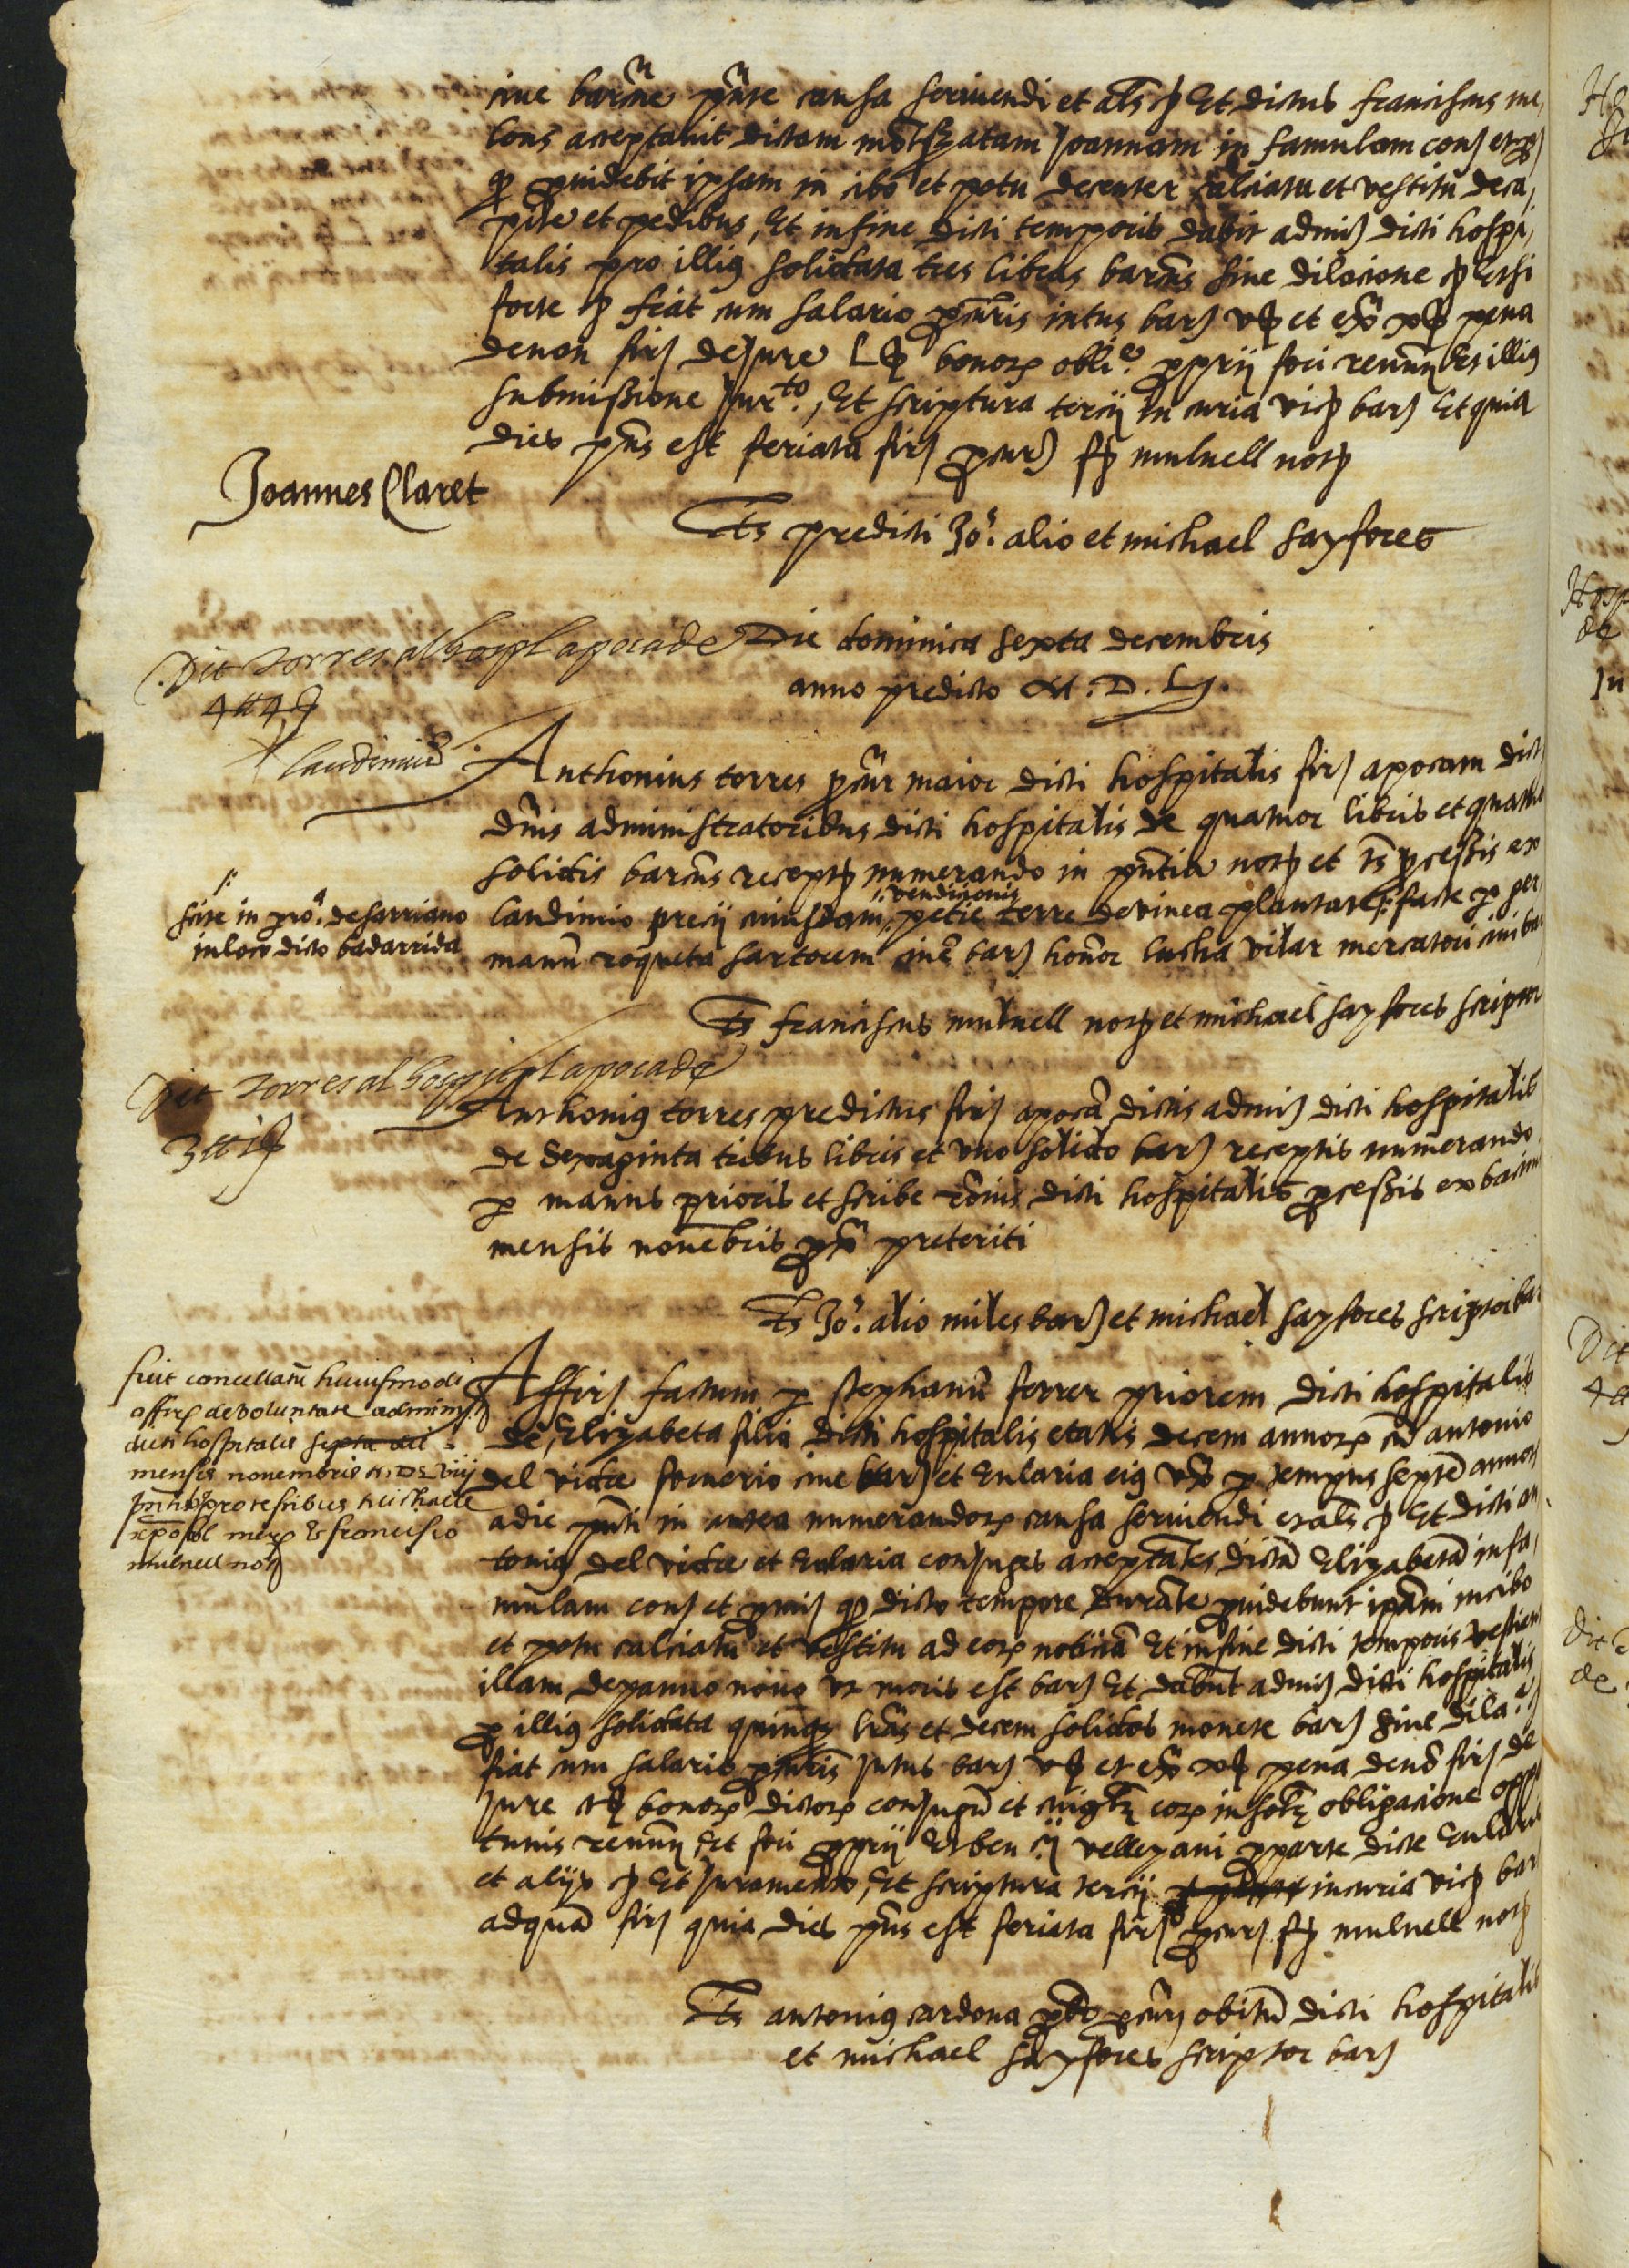 cive barcine presente causa serviendi et als etc Et dictus franciscus me,
lons acceptavit dictam Joannam in famulam cons et
providebit ipsam in cibo et potu decenter calciatu et vestitu de ca,
pite et pedibus, Et in fine dicti temporis dabit admis dicti hospi,
talis pro illius solidata tres libras barcns sine dilacione etc Et si
forte etc fiat cum salario procuris intus bars vs et extra xs pena
de non firs de jure bonorum obli.e proprii fori renun illius
submissione Jur.to, Et scriptura tercii in curia vics bars Et quia
dies pns est feriata firs procurs mulnell nots
Joannes Claret
Ts predicti Jo.s alio et michael sayfores
Dit torres al hospl apoca de
4 ll 4 s
laudimiis
Die dominica sexta decembris
anno predicto M. D. Lj.
Anthonius torres procur maior dicti hospitalis firs apocam dict
dnis administratoribus dicti hospitalis de quatuor libris et quatuor
solidis barcns receptis numerando in pntia nots et ts processis ex
laudimio precii cuiusdam venditionis petie terre de vinea plantate facte per ger,
manum roqueta sartorem cive bars honor lucha vilar mercatori civi bar
site in pro.a de sarriano
in loco dicto badarrida
Ts franciscus mulnell nots et michael sayfores scriptor
Dit torres al hospitpl apoca de
3 ll 1 s
Anthonius torres predictus firs apoca dictis admis dicti hospitalis
de sexaginta tribus libris et uno solido bars receptis numerando
per manus prioris et scribe dicti hospitalis processis ex bacino
mensis novebris pro preteriti
Ts Jo.s alio miles bars et michael sayfores scriptor bar
fuit cancellatu huiusmodi
affirs de voluntate administ
dicti hospitalis septa die
mensis novembris M D L viiij
pntibus pro testibus Michaele
merc et francisco
mulnell nots
Affirs factum per stephanum ferrer priorem dicti hospitalis
de, Elizabeta filia dicti hospitalis etatis decem annorum cu antonio
del vidre fornerio cive bars et Eularia eius ux per tempus septe annor
a die pnti in antea numerandorum causa serviendi et als etc Et dicti an
tonius del vidre et Eularia conjuges acceptates dicta Elizabeta in fa,
mulam cons et promis quod dicto tempore Durate providebunt ipam in cibo
et potu calciatu et vestitu ad eorum noticia Et in fine dicti temporis vestien
illam de panno novo ut moris est bars Et dabunt admis dicti hospitalis
pro illius solidata quinque lras et decem solidos monete bars sine dila.e
fiat cum salario procuris intus bars vs et ex xs pena de no firs de
jure bonorum dictorum conjugu et cuiuslz eorum in solz obligacione oppor
tunis renun Et fori proprii Et ben velleyani pro parte dicte Eularie
et alijs etc Et Juramento, Et scriptura tercii in curia vics bar
ad qua firs quia dies pns est feriata firs procurs mulnell nots
Ts antonius cardona pbr procur obitu dicti hospitalis
et michael sayfores scriptor bars